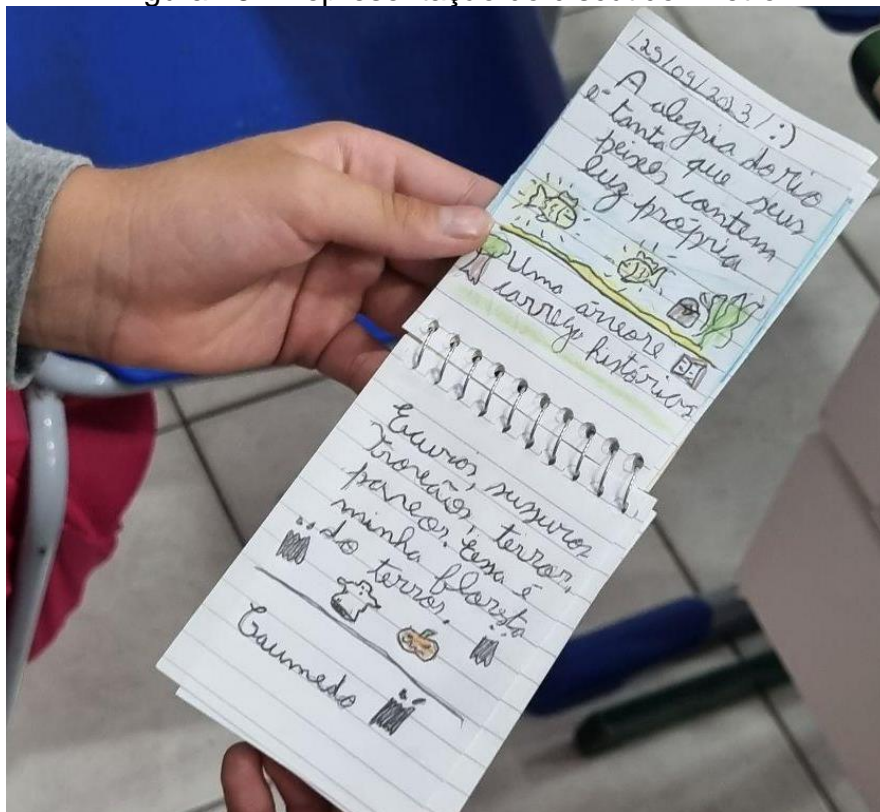 125/09/2023/:)
A alegria do rio
é tanta que seus
peixes contem
luz própria
Uma árvore
carrega histórias
Escuros, sussuros
Trovões, terror,
pavor. Essa é
minha floresta
do terror.